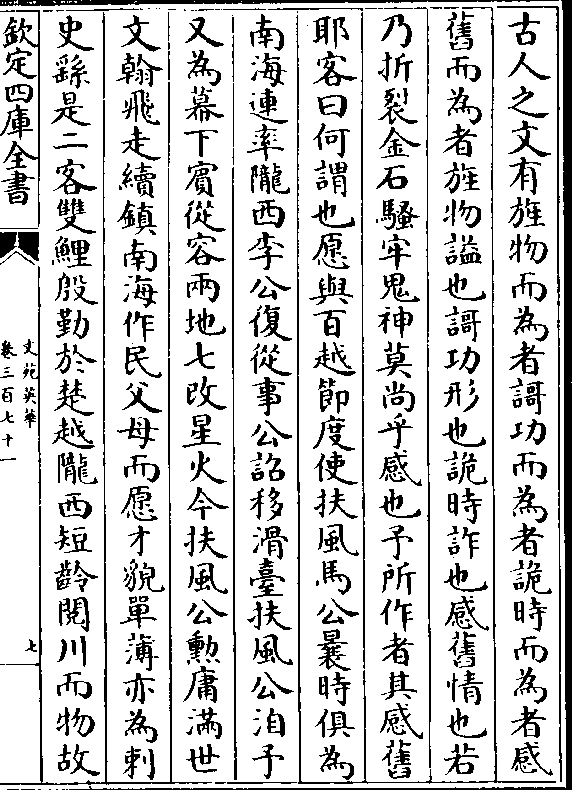 古人之文有旌物而為者謌功而為者詭時而為者感
舊而為者旌物謚也謌功形也詭時詐也感舊情也若
乃折裂金石騷牢鬼神莫尚乎感也予所作者其感舊
耶客曰何謂也愿與百越節度使扶風馬公曩時俱為
南海連率隴西李公復從事公詔移滑臺扶風公洎予
又為幕下賓從容兩地七改星火今扶風公勲庸滿世
文翰飛走續鎮南海作民父母而愿才貌單薄亦為刺
史繇是二客雙鯉殷勤於楚越隴西短齡閱川而物故
欽定四庫全書
文苑英華
卷三百七十一
七